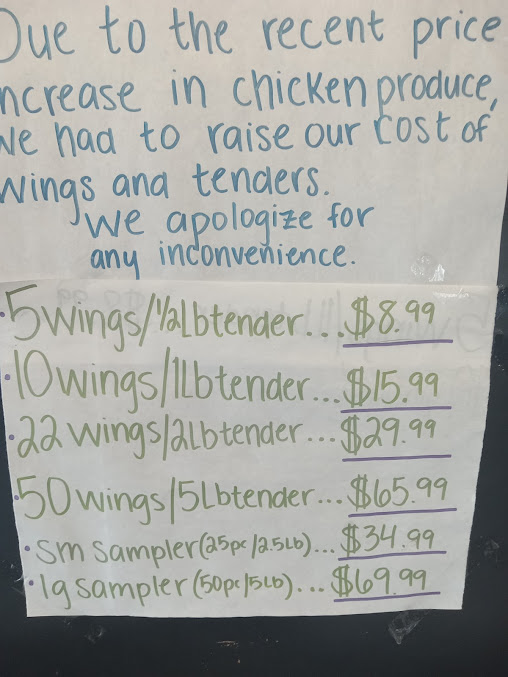 Due to the recent price
increase in chicken produce,
We had to raise our cost of
Wings and tenders.
We apologize for
any inconvenience.
•5wings/1/2Lbtender...$8.99
•10wings/1Lbtender...$15.99
•22wings/2Lbtender...$29.99
•50wings/5Lbtender...$65.99
•Sm sampler(25pc/2.5Lb)...$34.99
•lg sampler(50pc/5Lb)...$69.99